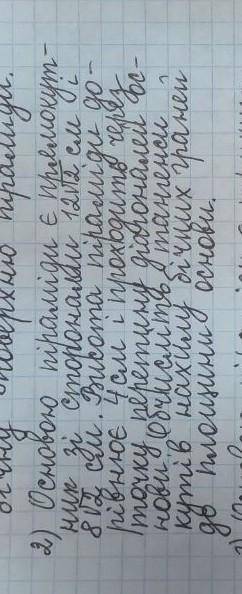 бічну поверхню піраміди.
2) Основою піраміди є прямокут-
ник зі сторонами 12√2 см і
8√2 см. Висота піраміди до-
рівнює 4 см і проходить через
точку перетину діагоналей ос-
нови. Обчисліть тангенси
кутів нахилу бічних граней
до площини основи.